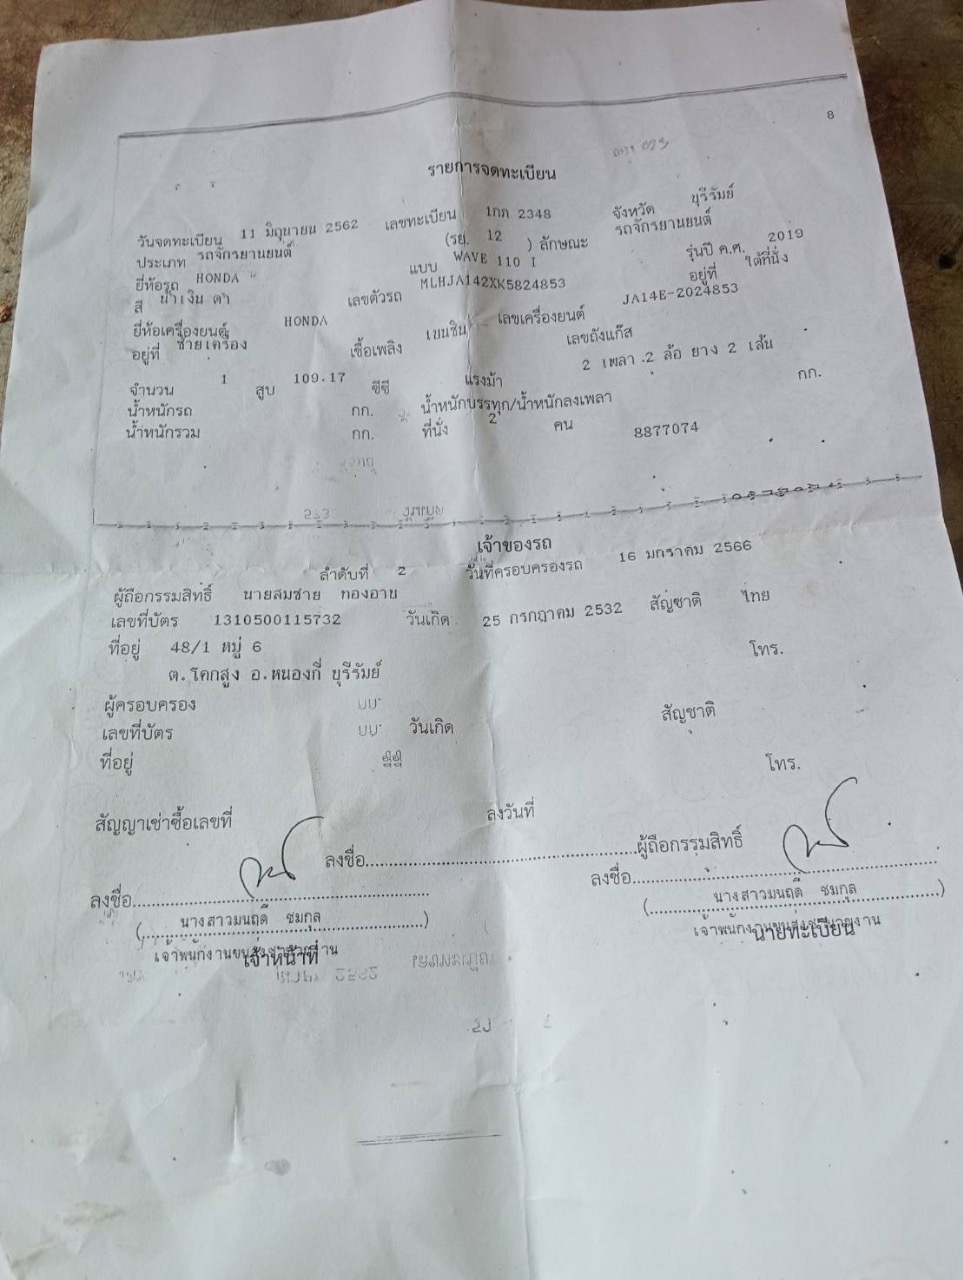 8
รายการจดทะเบียน
วันจดทะเบียน 11 มิถุนายน 2562 เลขทะเบียน 1กภ 2348 จังหวัด บุรีรัมย์
ประเภท รถจักรยานยนต์ (รย. 12 ) ลักษณะ รถจักรยานยนต์
ยี่ห้อรถ HONDA แบบ WAVE 110 I รุ่นปี ค.ศ. 2019
สี น้ำเงิน ดำ เลขตัวรถ MLHJA142XK5824853 อยู่ที่ ใต้ที่นั่ง
ยี่ห้อเครื่องยนต์ HONDA เลขเครื่องยนต์ JA14E-2024853
อยู่ที่ ซ้ายเครื่อง เชื้อเพลิง เบนซิน เลขถังแก๊ส
จำนวน 1 สูบ 109.17 ซีซี แรงม้า 2 เพลา 2 ล้อ ยาง 2 เส้น
น้ำหนักรถ กก. น้ำหนักบรรทุก/น้ำหนักลงเพลา กก.
น้ำหนักรวม กก. ที่นั่ง 2 คน 8877074
เจ้าของรถ
ลำดับที่ 2 วันที่ครอบครองรถ 16 มกราคม 2566
ผู้ถือกรรมสิทธิ์ นายสมชาย ทองอาบ
เลขที่บัตร 1310500115732 วันเกิด 25 กรกฎาคม 2532 สัญชาติ ไทย
ที่อยู่ 48/1 หมู่ 6 โทร.
ต.โคกสูง อ.หนองกี่ บุรีรัมย์
ผู้ครอบครอง สัญชาติ
เลขที่บัตร วันเกิด
ที่อยู่ โทร.
สัญญาเช่าซื้อเลขที่ ลงวันที่
ลงชื่อ ผู้ถือกรรมสิทธิ์
ลงชื่อ ลงชื่อ
( นางสาวมนฤดี ชมกุล ) ( นางสาวมนฤดี ชมกุล )
เจ้าพนักงานขนส่งชำนาญงาน เจ้าพนักงานขนส่งชำนาญงาน
เจ้าหน้าที่ นายทะเบียน